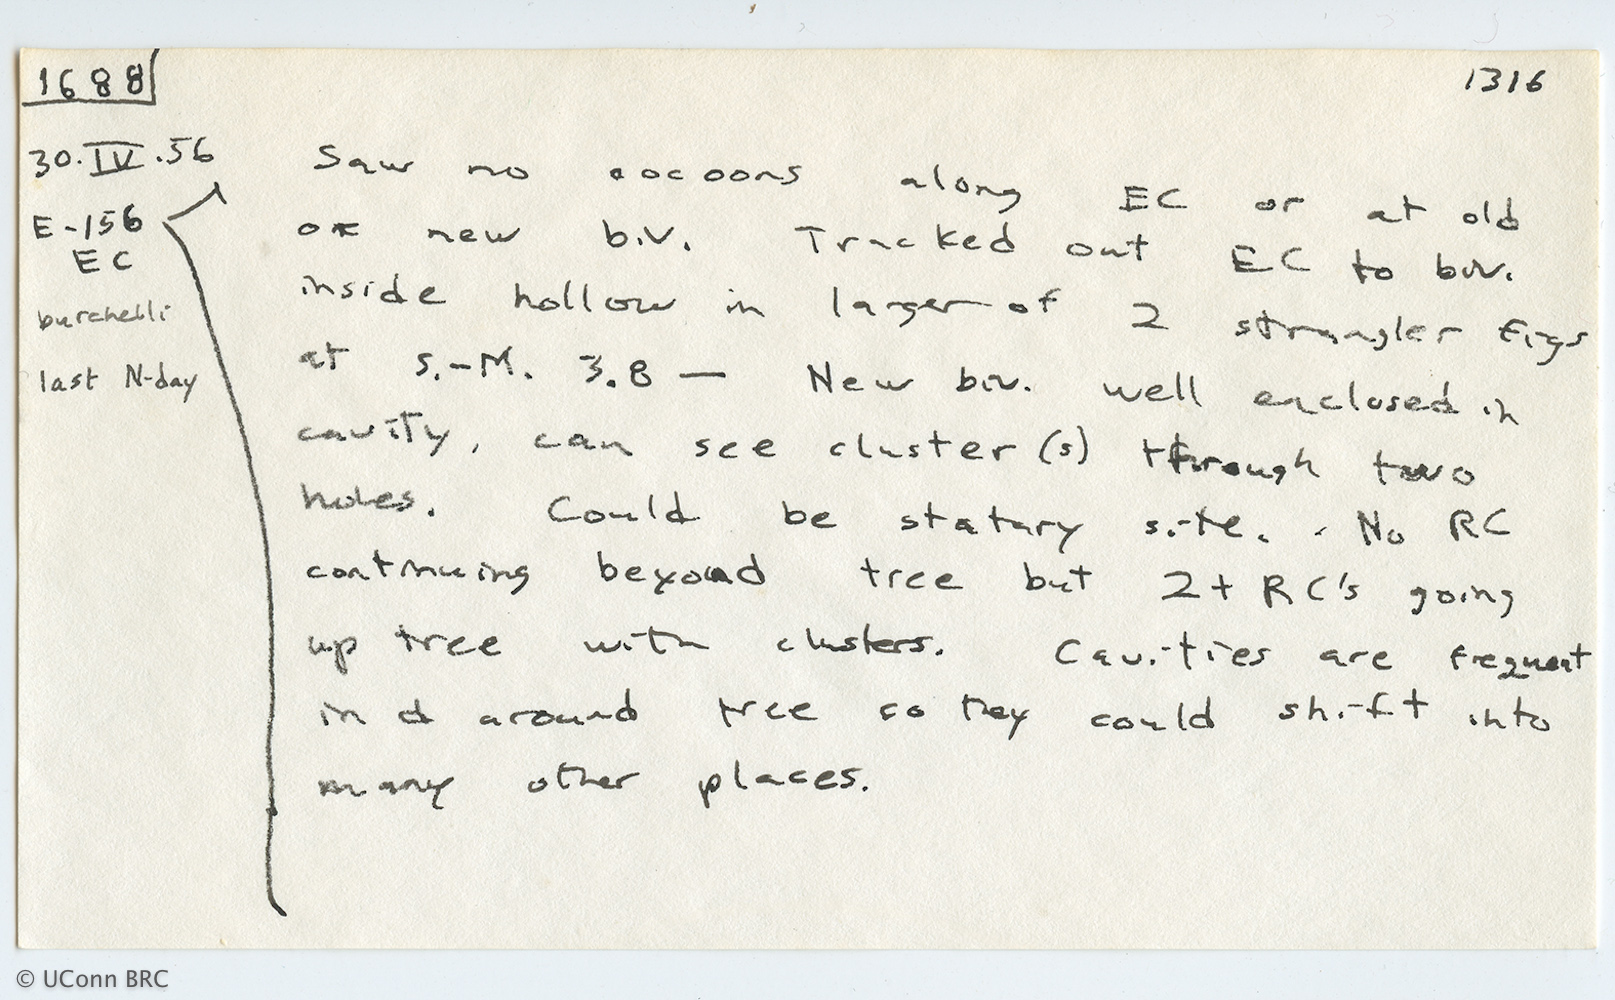 1688
1316
30.IV.56
E-156
EC
burchelli
last N-day
Saw no cocoons along EC or at old
or new biv. Tracked out EC to biv.
inside hollow in larger of 2 strangler figs
at S.-M. 3.8 — New biv. well enclosed in
cavity, can see cluster(s) through two
holes. Could be statary site. - No RC
continuing beyond tree but 2+ RC's going
up tree with clusters. Cavities are frequent
in & around tree so they could shift into
many other places.
© UConn BRC